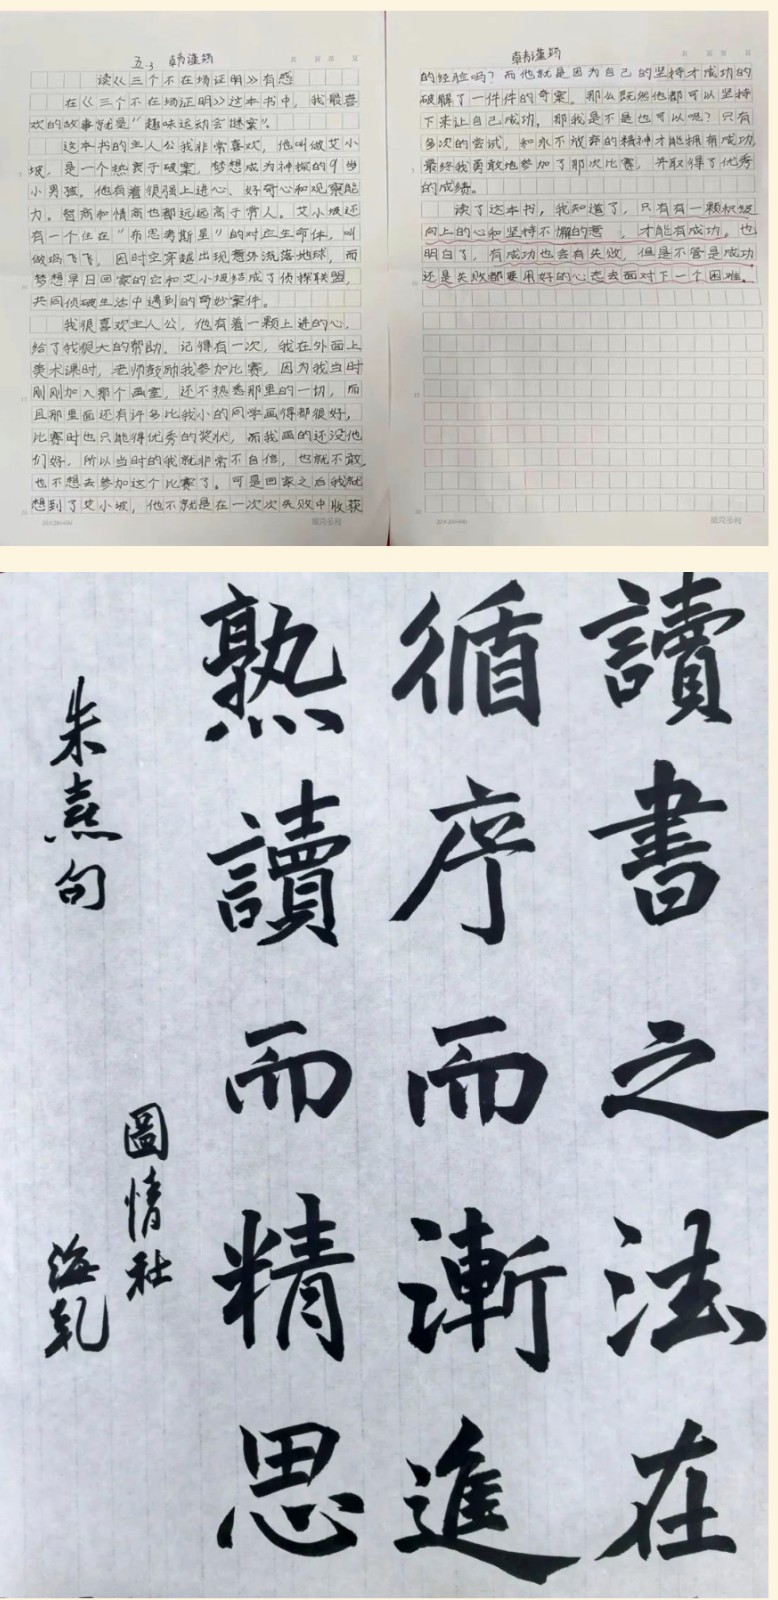 五.3 韩谨筠
读《三个不在场证明》有感
在《三个不在场证明》这本书中，我最喜
欢的故事就是“趣味运动会谜案”。
这本书的主人公我非常喜欢，他叫做艾小
坡，是一个热衷于破案，梦想成为神探的9岁
小男孩。他有着很强上进心、好奇心和观察能
力。智商和情商也都远远高于常人。艾小坡还
有一个住在“布思考斯星”的对应生命体，叫
做坞飞飞，因时空穿越出现意外流落地球，而
梦想早日回家的它和艾小坡结成了侦探联盟，
共同侦破生活中遇到的奇妙案件。
我很喜欢主人公，他有着一颗上进的心，
给了我很大的帮助。记得有一次，我在外面上
美术课时，老师鼓励我参加比赛，因为我当时
刚刚加入那个画室，还不熟悉那里的一切，而
且那里面还有许多比我小的同学画得都很好，
比赛时也只能得优秀的奖状，而我画的还没他
们好，所以当时的我就非常不自信，也就不敢，
也不想去参加这个比赛了。可是回家之后我就
想到了艾小坡，他不就是在一次次失败中收获
韩谨筠
的经验吗？而他就是因为自己的坚持才成功的
破解了一件件的奇案。那么既然他都可以坚持
下来让自己成功，那我是不是也可以呢？只有
多次的尝试，和永不放弃的精神才能拥有成功，
最终我勇敢地参加了那次比赛，并取得了优秀
的成绩。
读了这本书，我知道了，只有有一颗积极
向上的心和坚持不懈的意 ，才能有成功。也
明白了，有成功也会有失败，但是不管是成功
还是失败都要用好的心态去面对下一个困难。
讀書之法在
循序而漸進
熟讀而精思
朱熹句
圖情社
海乾